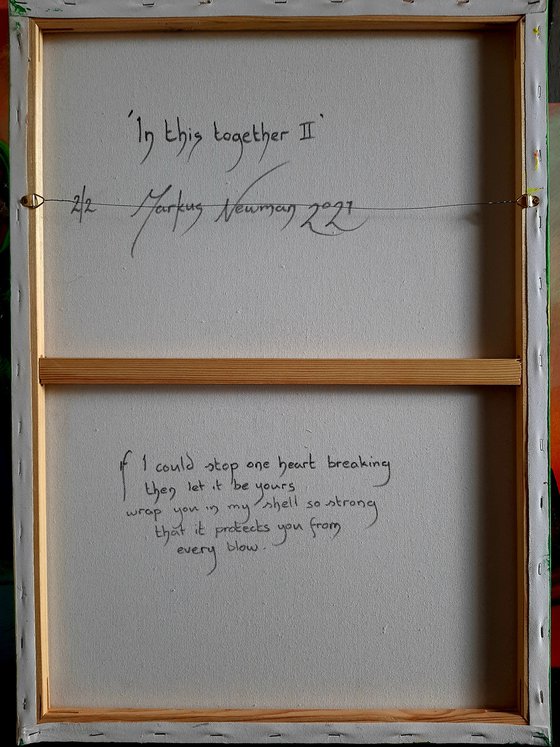 'In this together II'
2/2 Markus Newman 2021
If I could stop one heart breaking
then let it be yours
wrap you in my shell so strong
that it protects you from
every blow.